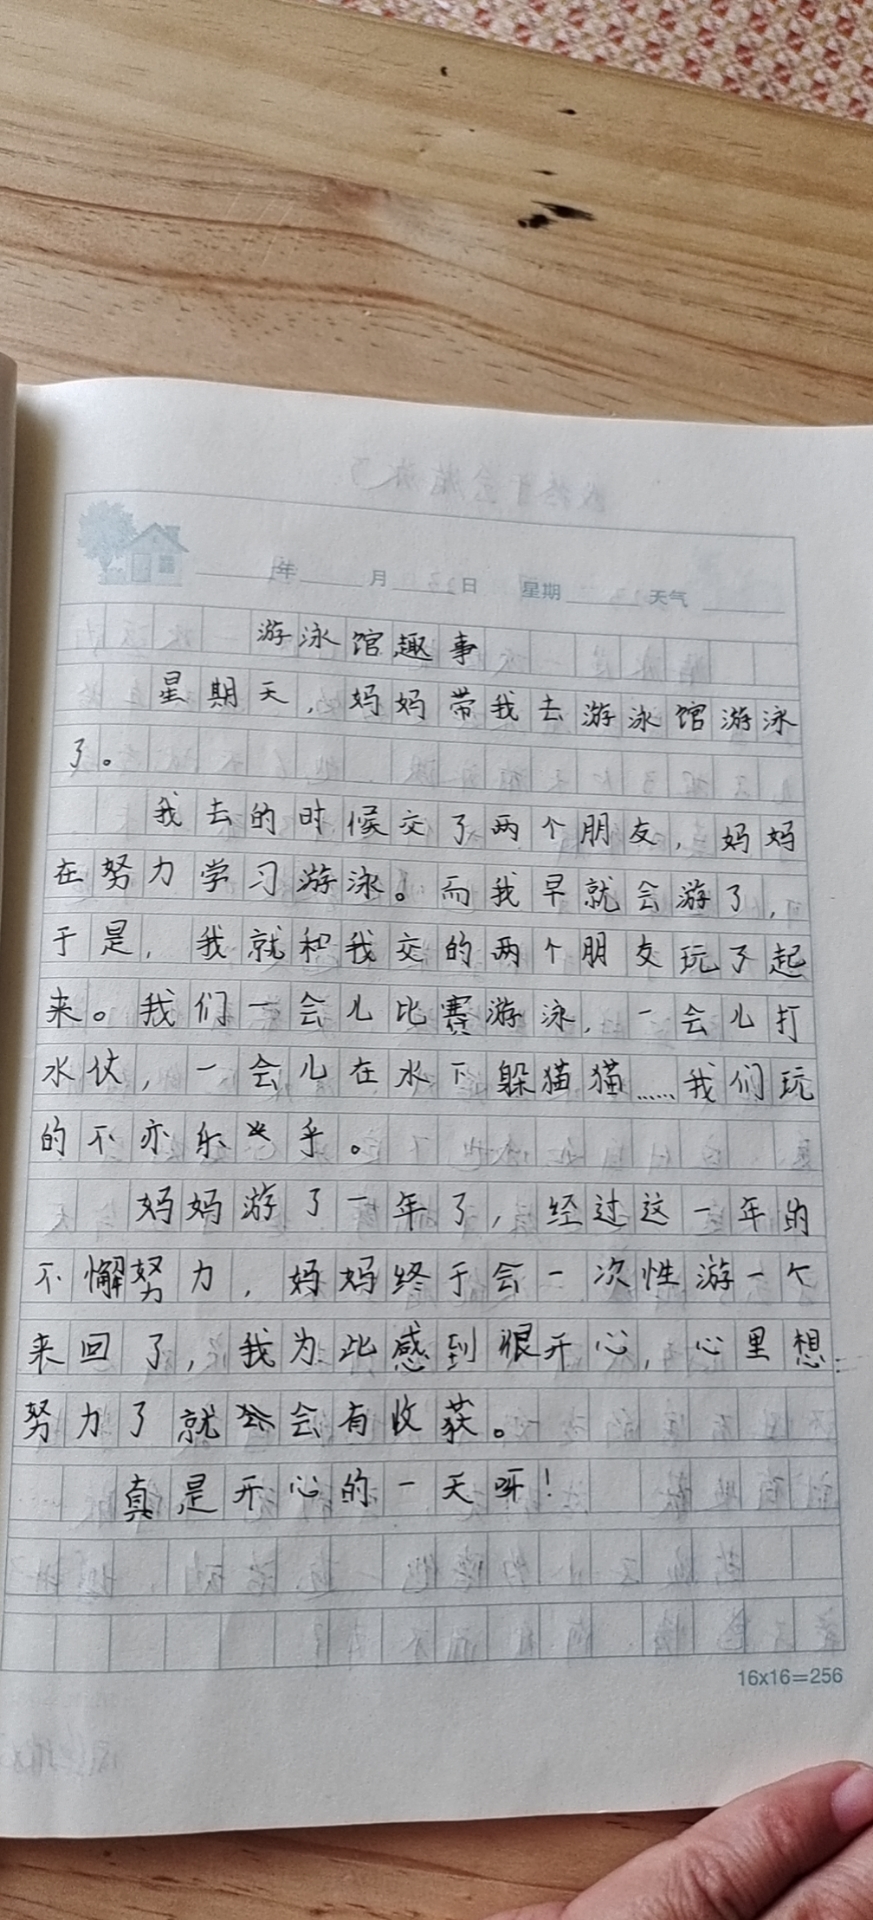 年 月 日 星期 天气
游泳馆趣事
星期天，妈妈带我去游泳馆游泳
了。
我去的时候交了两个朋友，妈妈
在努力学习游泳。而我早就会游了，
于是，我就和我交的两个朋友玩了起
来。我们一会儿比赛游泳，一会儿打
水仗，一会儿在水下躲猫猫……我们玩
的不亦乐乎。
妈妈游了一年了，经过这一年的
不懈努力，妈妈终于会一次性游一个
来回了，我为此感到很开心，心里想：
努力了就会有收获。
真是开心的一天呀！
16x16=256